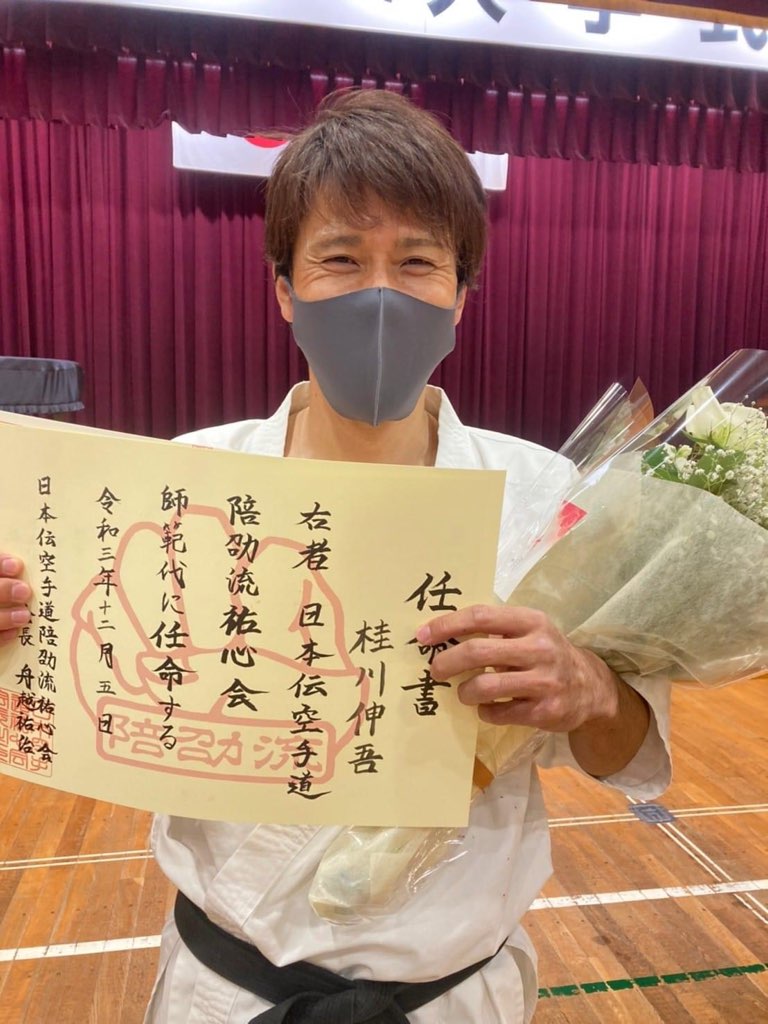 大学
任命書
桂川伸吾
右者 日本伝空手道
陪劭流祐心会
師範代に任命する
令和三年十二月五日
日本伝空手道陪劭流祐心会
会長 舟越祐治
陪劭流